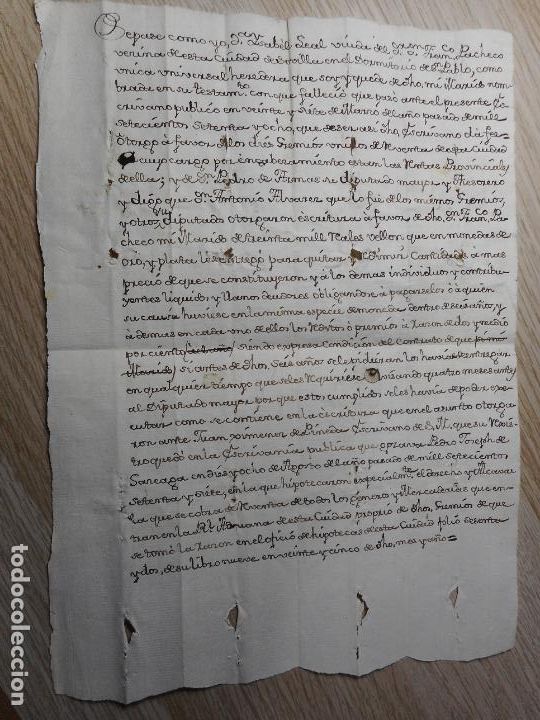 Sepase como yo, Dª Ysabèl Leal viuda de Dn Franco Pacheco
vecina de esta Ciudad de Sevilla en el Dormitorio de Sn Pablo, como
unica universal heredera que soy y quede de dho, mi Marido nom
brada en su testamto con que fallecio que pasò ante el presente Es
crivano publico en veinte y siete de Marzo del año pasado de mill
setecientos setenta y ocho, que de ser asi dho Escrivano da fee=
Otorgo à favor de los diez Gremios unidos de Reventa de esta Ciudad
à cuyo cargo por encabezamiento estan las Rentas Provinciales
de ella; y de Dn Pedro de Armas su Diputado mayor y Thesorero
y digo que Dn Antonio Alvarez que lo fuè de los mismos Gremios
y otros Diputados otorgaron escritura à favor de dho Dn Franco Pa
checo mi Marido de treinta mill Reales vellon que en monedas de
oro, y plata les entregò para quitar
precio de que se constituyeron y à los demas individuos y contribu
yentes liquidos, y llanos deudores obligandose à pagarselos ò à quien
su causa huviese en la misma especie de moneda dentro de seis años, y
à demas en cada uno de ellos los reditos ò premios à razon de dos y medio
por ciento siendo expresa Condicion del contrato de que
si antes de dhos, seis años se le pidieran los havia de entregar
en qualquier tiempo que se les requiriese avisando quatro meses antes
al Diputado mayor por que esto cumplido se les havia de poder exe
cutar como se contiene en la escritura que en el asunto otorga
ron ante Juan Ximenez de Pineda Escrivano de S.M. que su Regis
tro quedò en la Escrivania publica que exercia Pedro Joseph de
en diez y ocho de Agosto del año pasado de mill setecientos
setenta y siete, en la que hipotecaron especialmte el derecho y Alcavar
la que se cobra de Reventa de todos los generos y Mercaderias que en=
tran en la Rl Aduana de esta Ciudad propio de dhos, Gremios de que
se tomò la razon en el oficio de hipotecas de esta Ciudad folio sesenta
y dos, de su libro nueve en veinte y cinco de dho, mes y año=
todocoleccion